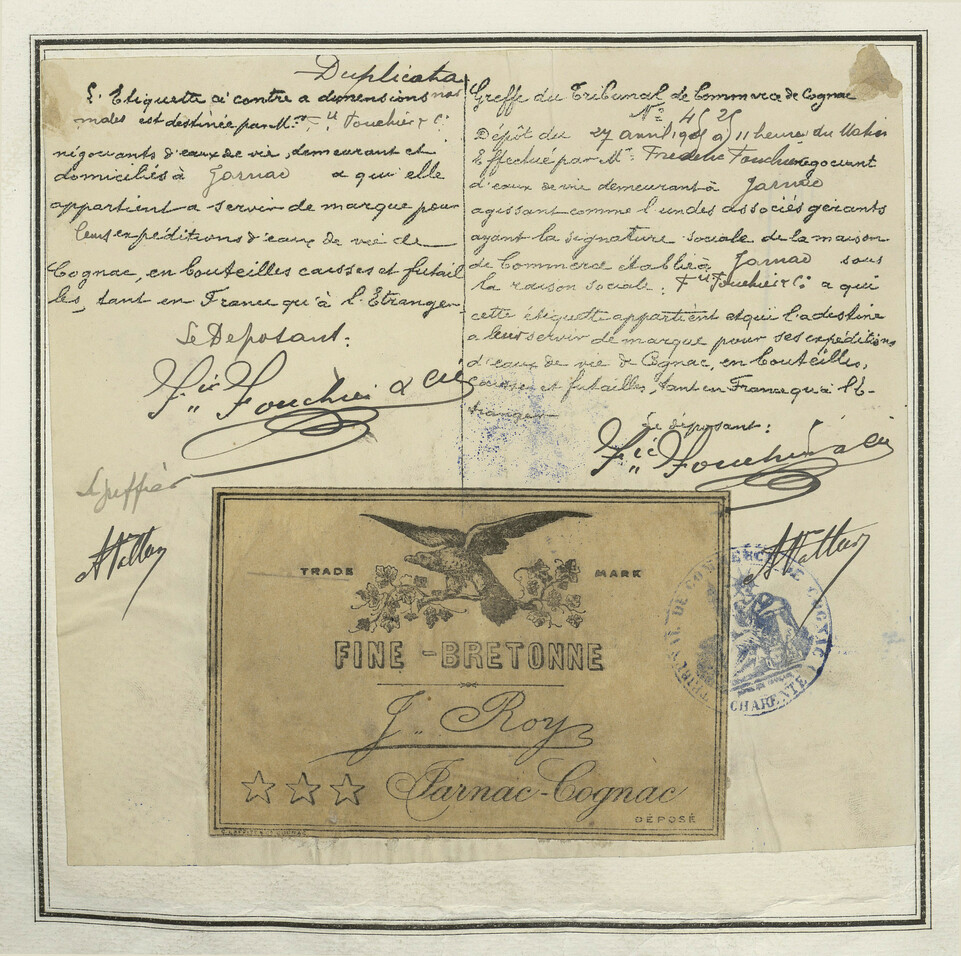 Duplicata
L'Etiquette ci contre a dimensions nor
males est destinée, par Mrs Fc Fouchier & Cie
négociants d'eaux de vie, demeurant et
domiciliés à Jarnac a qui elle
appartient a servir de marque pour
leurs expéditions d'eaux de vie de
Cognac, en bouteilles caisses et futail
les, tant en France qu'à l'Etranger
Le Deposant:
Fic Fouchier & Cie
Le Greffier
Greffe du Tribunal de Commerce de Cognac
No
Dépôt du 27 avril à 11 heures du Matin
Effectué par Mr: Frédéric Fouchier négociant
d'eaux de vie demeurant à Jarnac
agissant comme l'un des associés gérants
ayant la signature sociale de la maison
de Commerce établie à Jarnac sous
la raison sociale: Fic Fouchier & Co a qui
cette étiquette appartient et qui l'a destine
a leur servir de marque pour ses expéditions
d'eaux de vie de Cognac, en bouteilles,
caisses et futailles, tant en France qu'à l'E-
tranger
Le déposant:
Fic Fouchier & Cie
TRADE MARK
FINE - BRETONNE
J. Roy
Jarnac-Cognac
DÉPOSÉ
TRIBUNAL DE COMMERCE DE COGNAC
CHARENTE